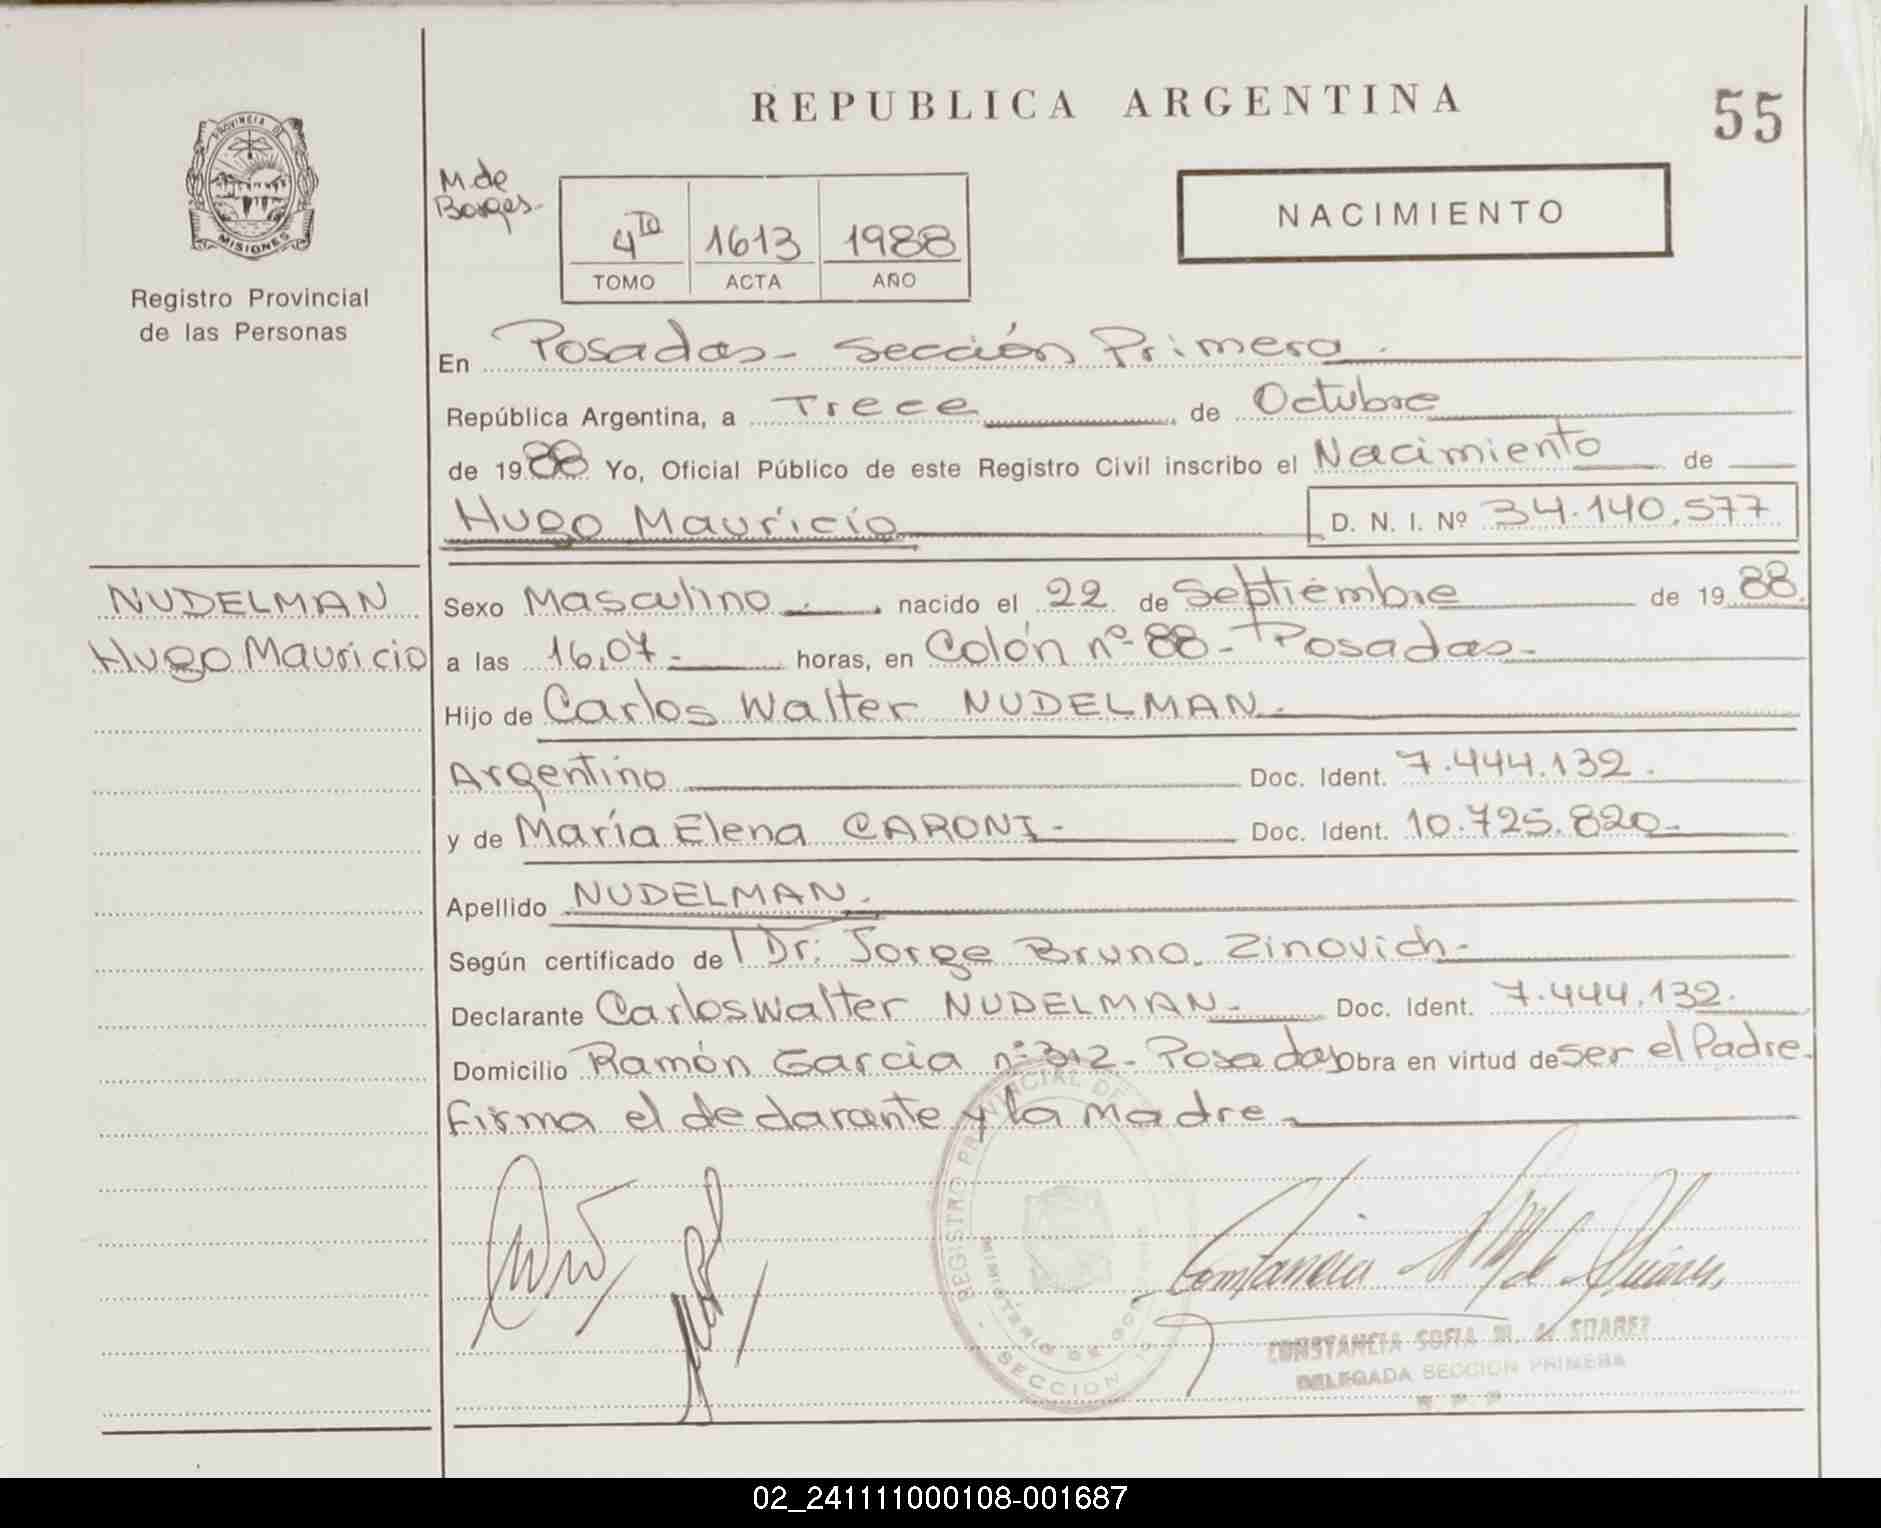 REPUBLICA ARGENTINA
55
PROVINCIA DE
MISIONES
Registro Provincial
de las Personas
M. de
Borges-
4TO 1613 1988
TOMO ACTA AÑO
NACIMIENTO
En Posadas- Sección Primera.
República Argentina, a Trece de Octubre
de 1988 Yo, Oficial Público de este Registro Civil inscribo el Nacimiento de
Hugo Mauricio D. N. I. Nº 34.140.577
NUDELMAN
Hugo Mauricio
Sexo Masculino nacido el 22 de Septiembre de 1988.
a las 16,07- horas, en Colón nº 88- Posadas-
Hijo de Carlos Walter NUDELMAN.
Argentino Doc. Ident. 7.444.132.
y de María Elena CARONI- Doc. Ident. 10.725.820-
Apellido NUDELMAN.
Según certificado de Dr. Jorge Bruno Zinovich-
Declarante Carlos Walter NUDELMAN- Doc. Ident. 7.444.132.
Domicilio Ramón Garcia nº 312- Posadas Obra en virtud de ser el Padre.
Firma el declarante y la madre
REGISTRO PROVINCIAL DE
MINISTERIO DE
SECCION
CONSTANCIA SOFIA M. de SUAREZ
DELEGADA SECCION PRIMERA
02_241111000108-001687